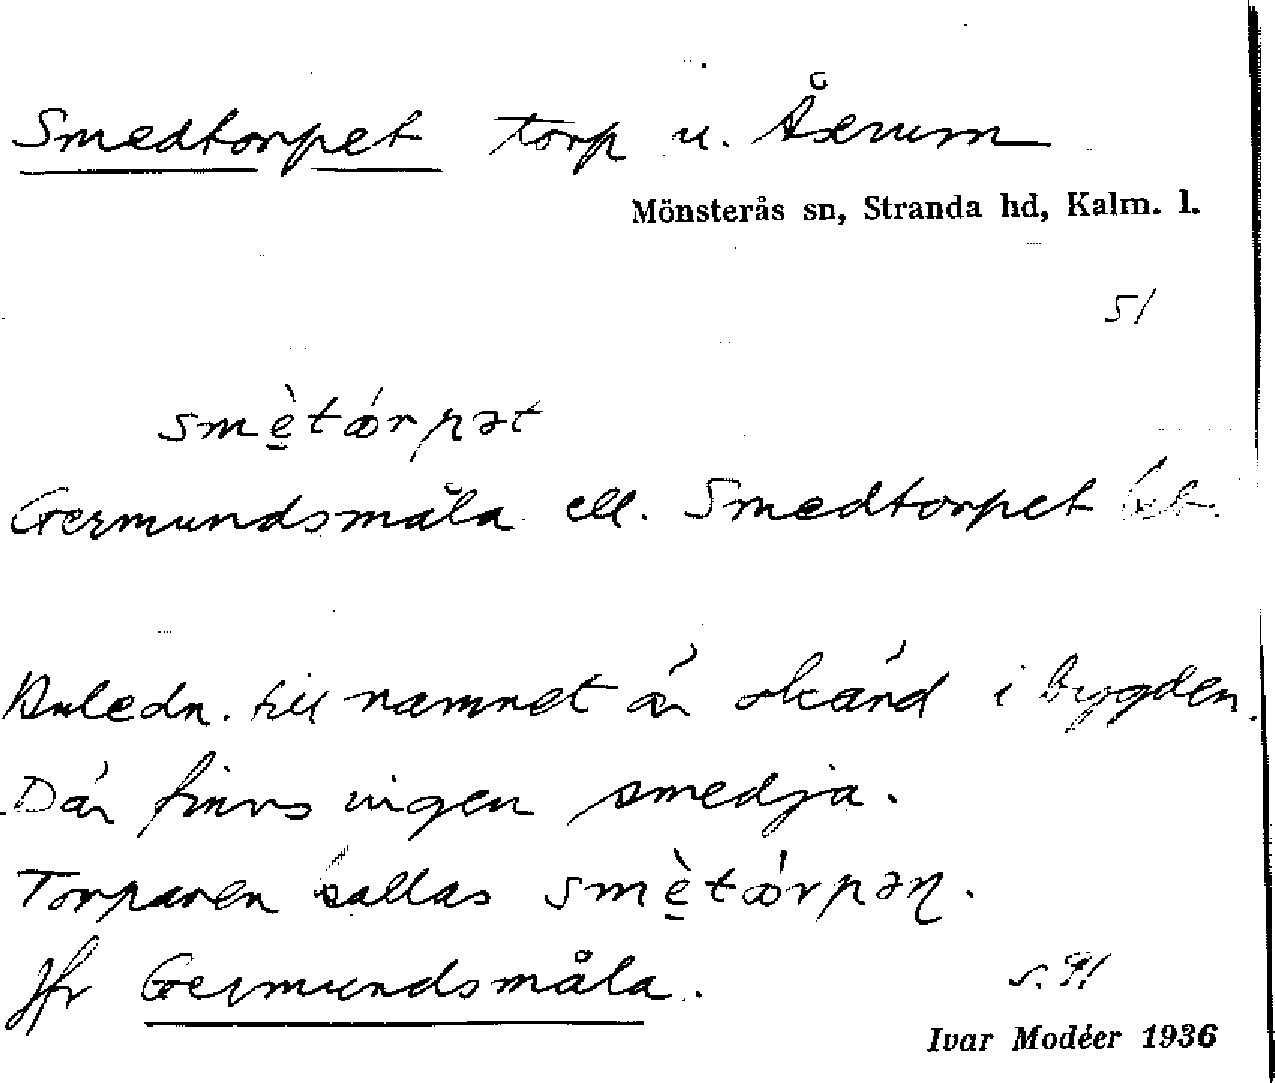 Smedtorpet torp u. Åserum
Mönsterås sn, Stranda hd, Kalm. l.
51
smè̱tǿrpət
Germundsmåla ell. Smedtorpet bet.
Anledn. till namnet är okänd i bygden.
Där finns ingen smedja.
Torparen kallas smè̱tǿrpəɳ.
Jfr Germundsmåla.
s. 91
Ivar Modéer 1936